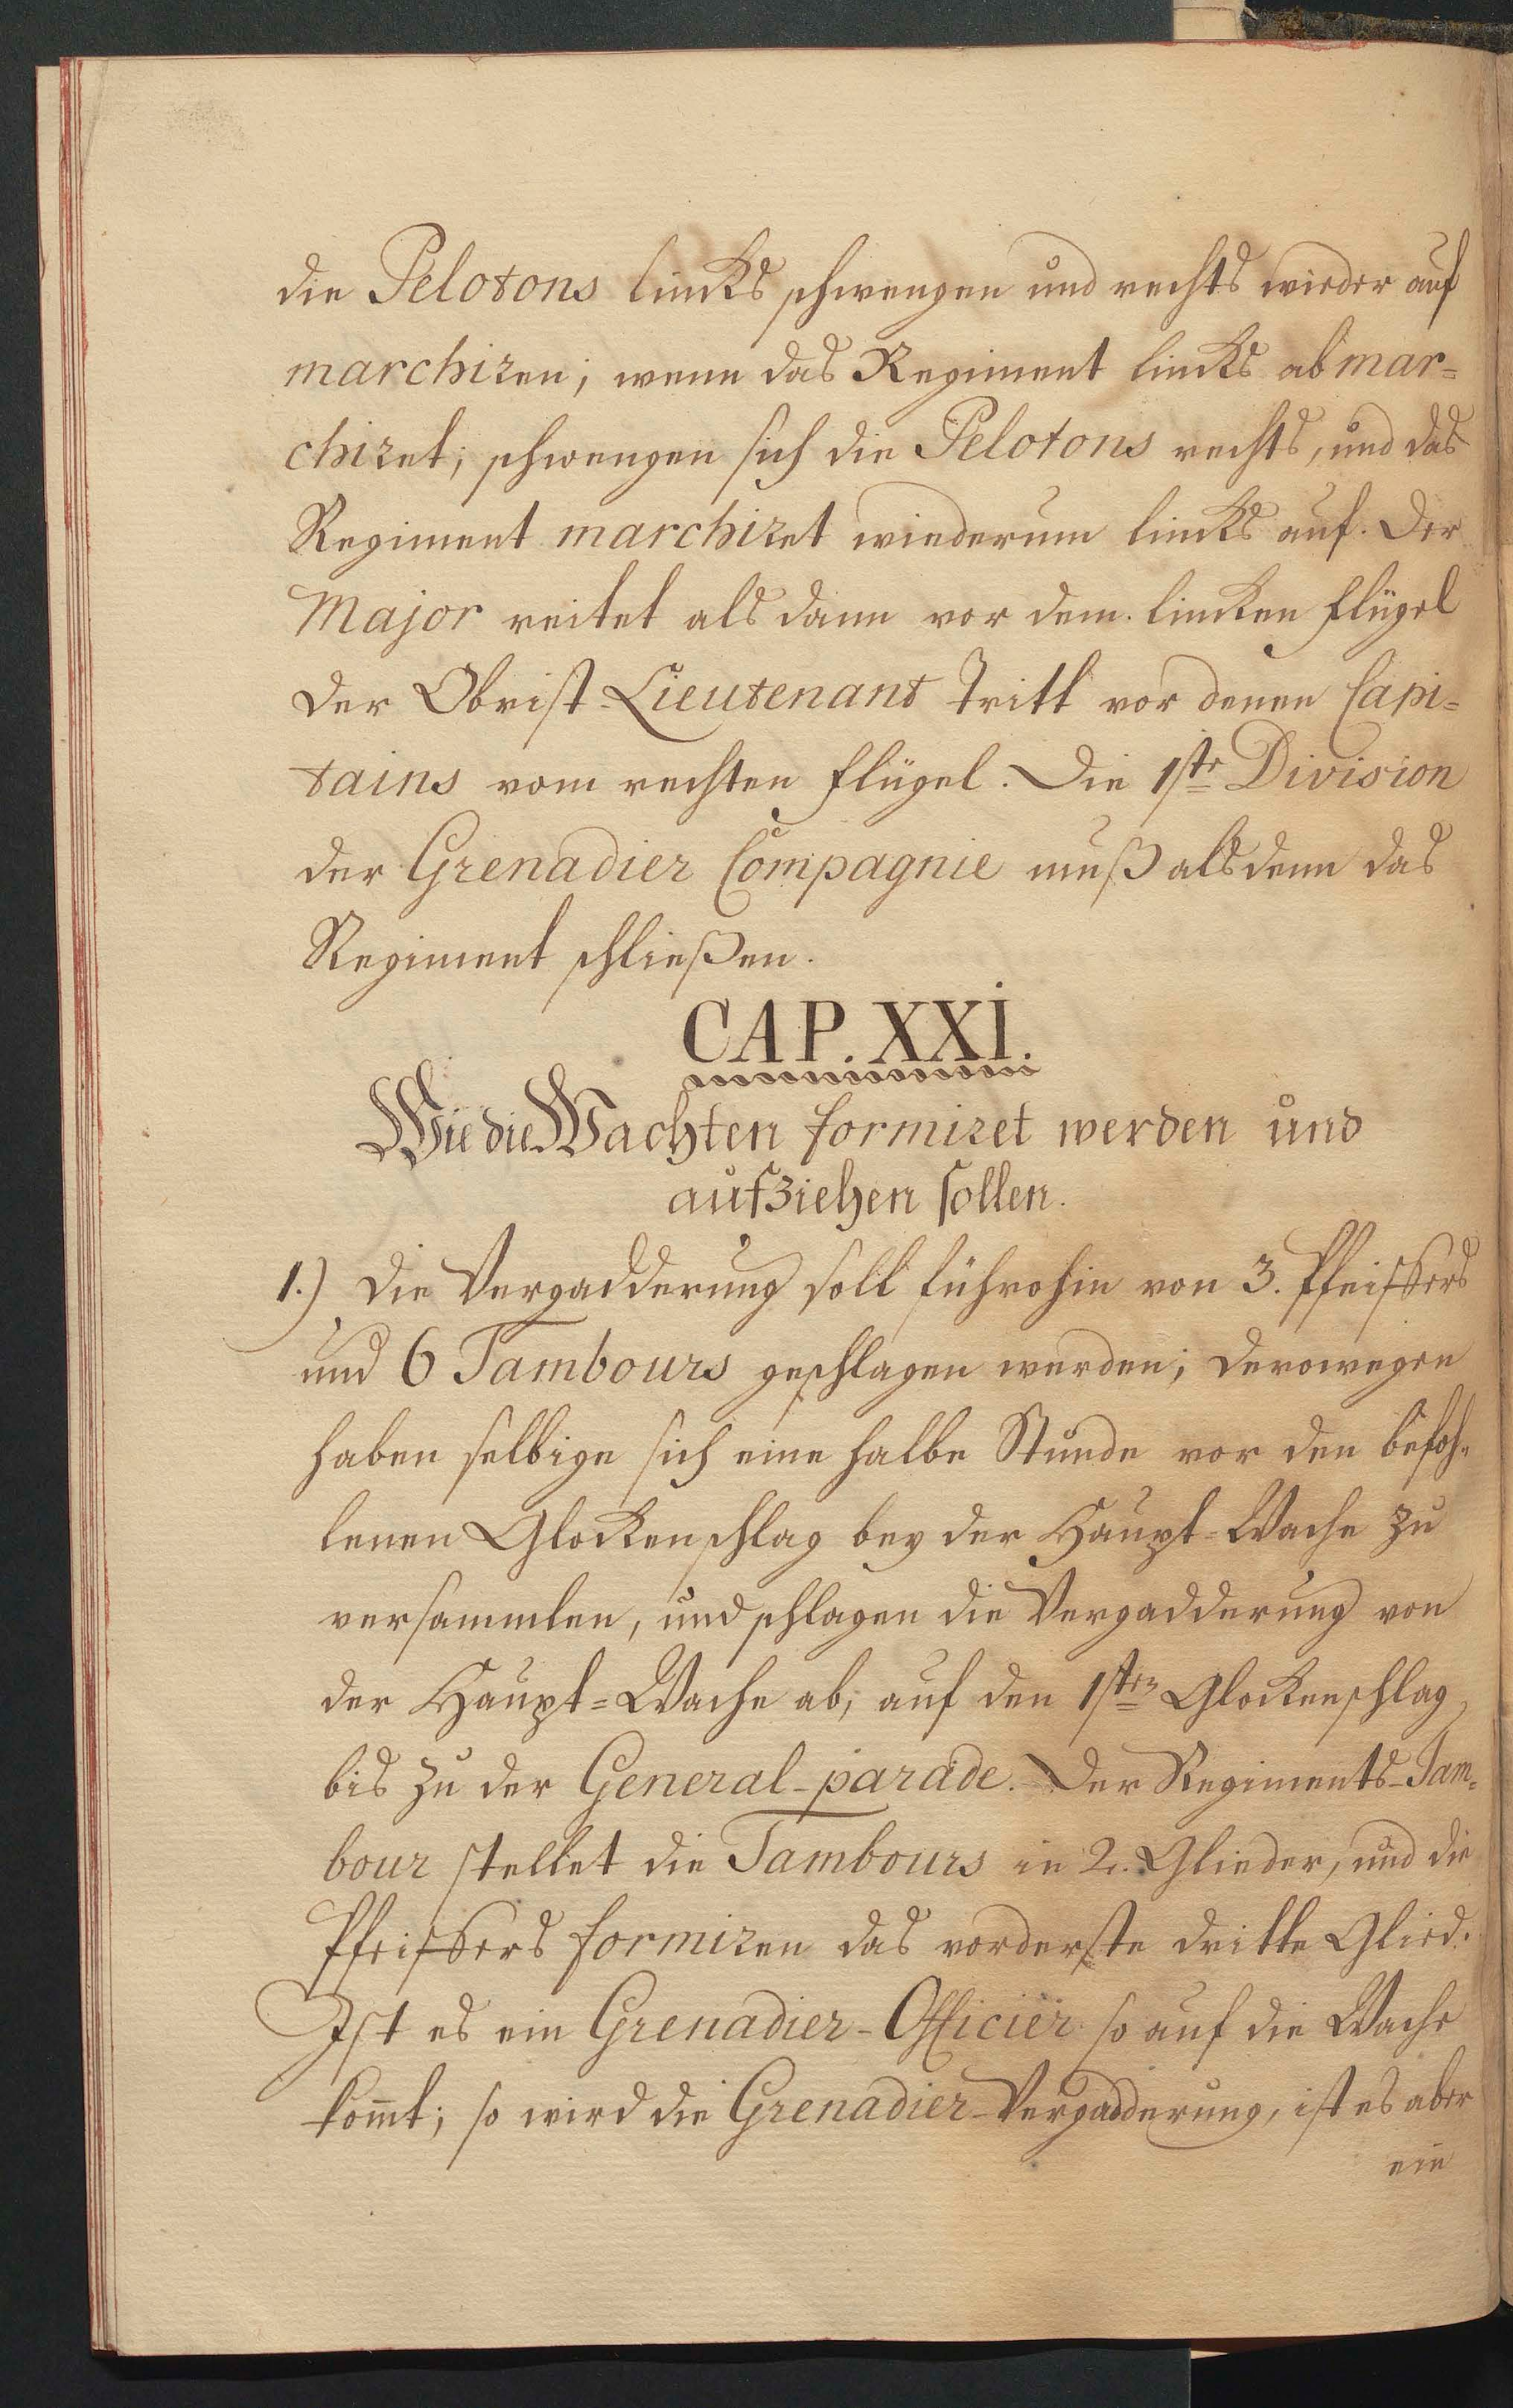 die Pelotons lincks schwengen und rechts wieder auf
marchiren; wenn das Regiment lincks abmar=
chiret; schwengen sich die Pelotons rechts, und das
Regiment marchiret wiederum lincks auf. Der
Major reitet als dann vor dem lincken Flügel
der Obrist-Lieutenant Tritt vor denen Capi=
tains vom rechten Flügel. Die 1ste Division
der Grenadier Compagnie muß alsdenn das
Regiment schließen.
CAP. XXI.
Wie die Wachten formiret werden und
aufziehen sollen.
1.) Die Vergadderung soll führohin von 3. Pfeiffers
und 6 Tambours geschlagen werden; derowegen
haben selbige sich eine halbe Stunde vor den befoh=
lenen Glockenschlag bey der Haupt=Wache zu
versammlen, und schlagen die Vergadderung von
der Haupt=Wache ab, auf den 1sten Glockenschlag,
bis zu der General-parade. Der Regiments-Tam=
bour stellet die Tambours in 2. Glieder, und die
Pfeiffers formiren das vorderste dritte Glied.
Ist es ein Grenadier-Officier so auf die Wache
kom̅t; so wird die Grenadier-Vergadderung, ist es aber
ein